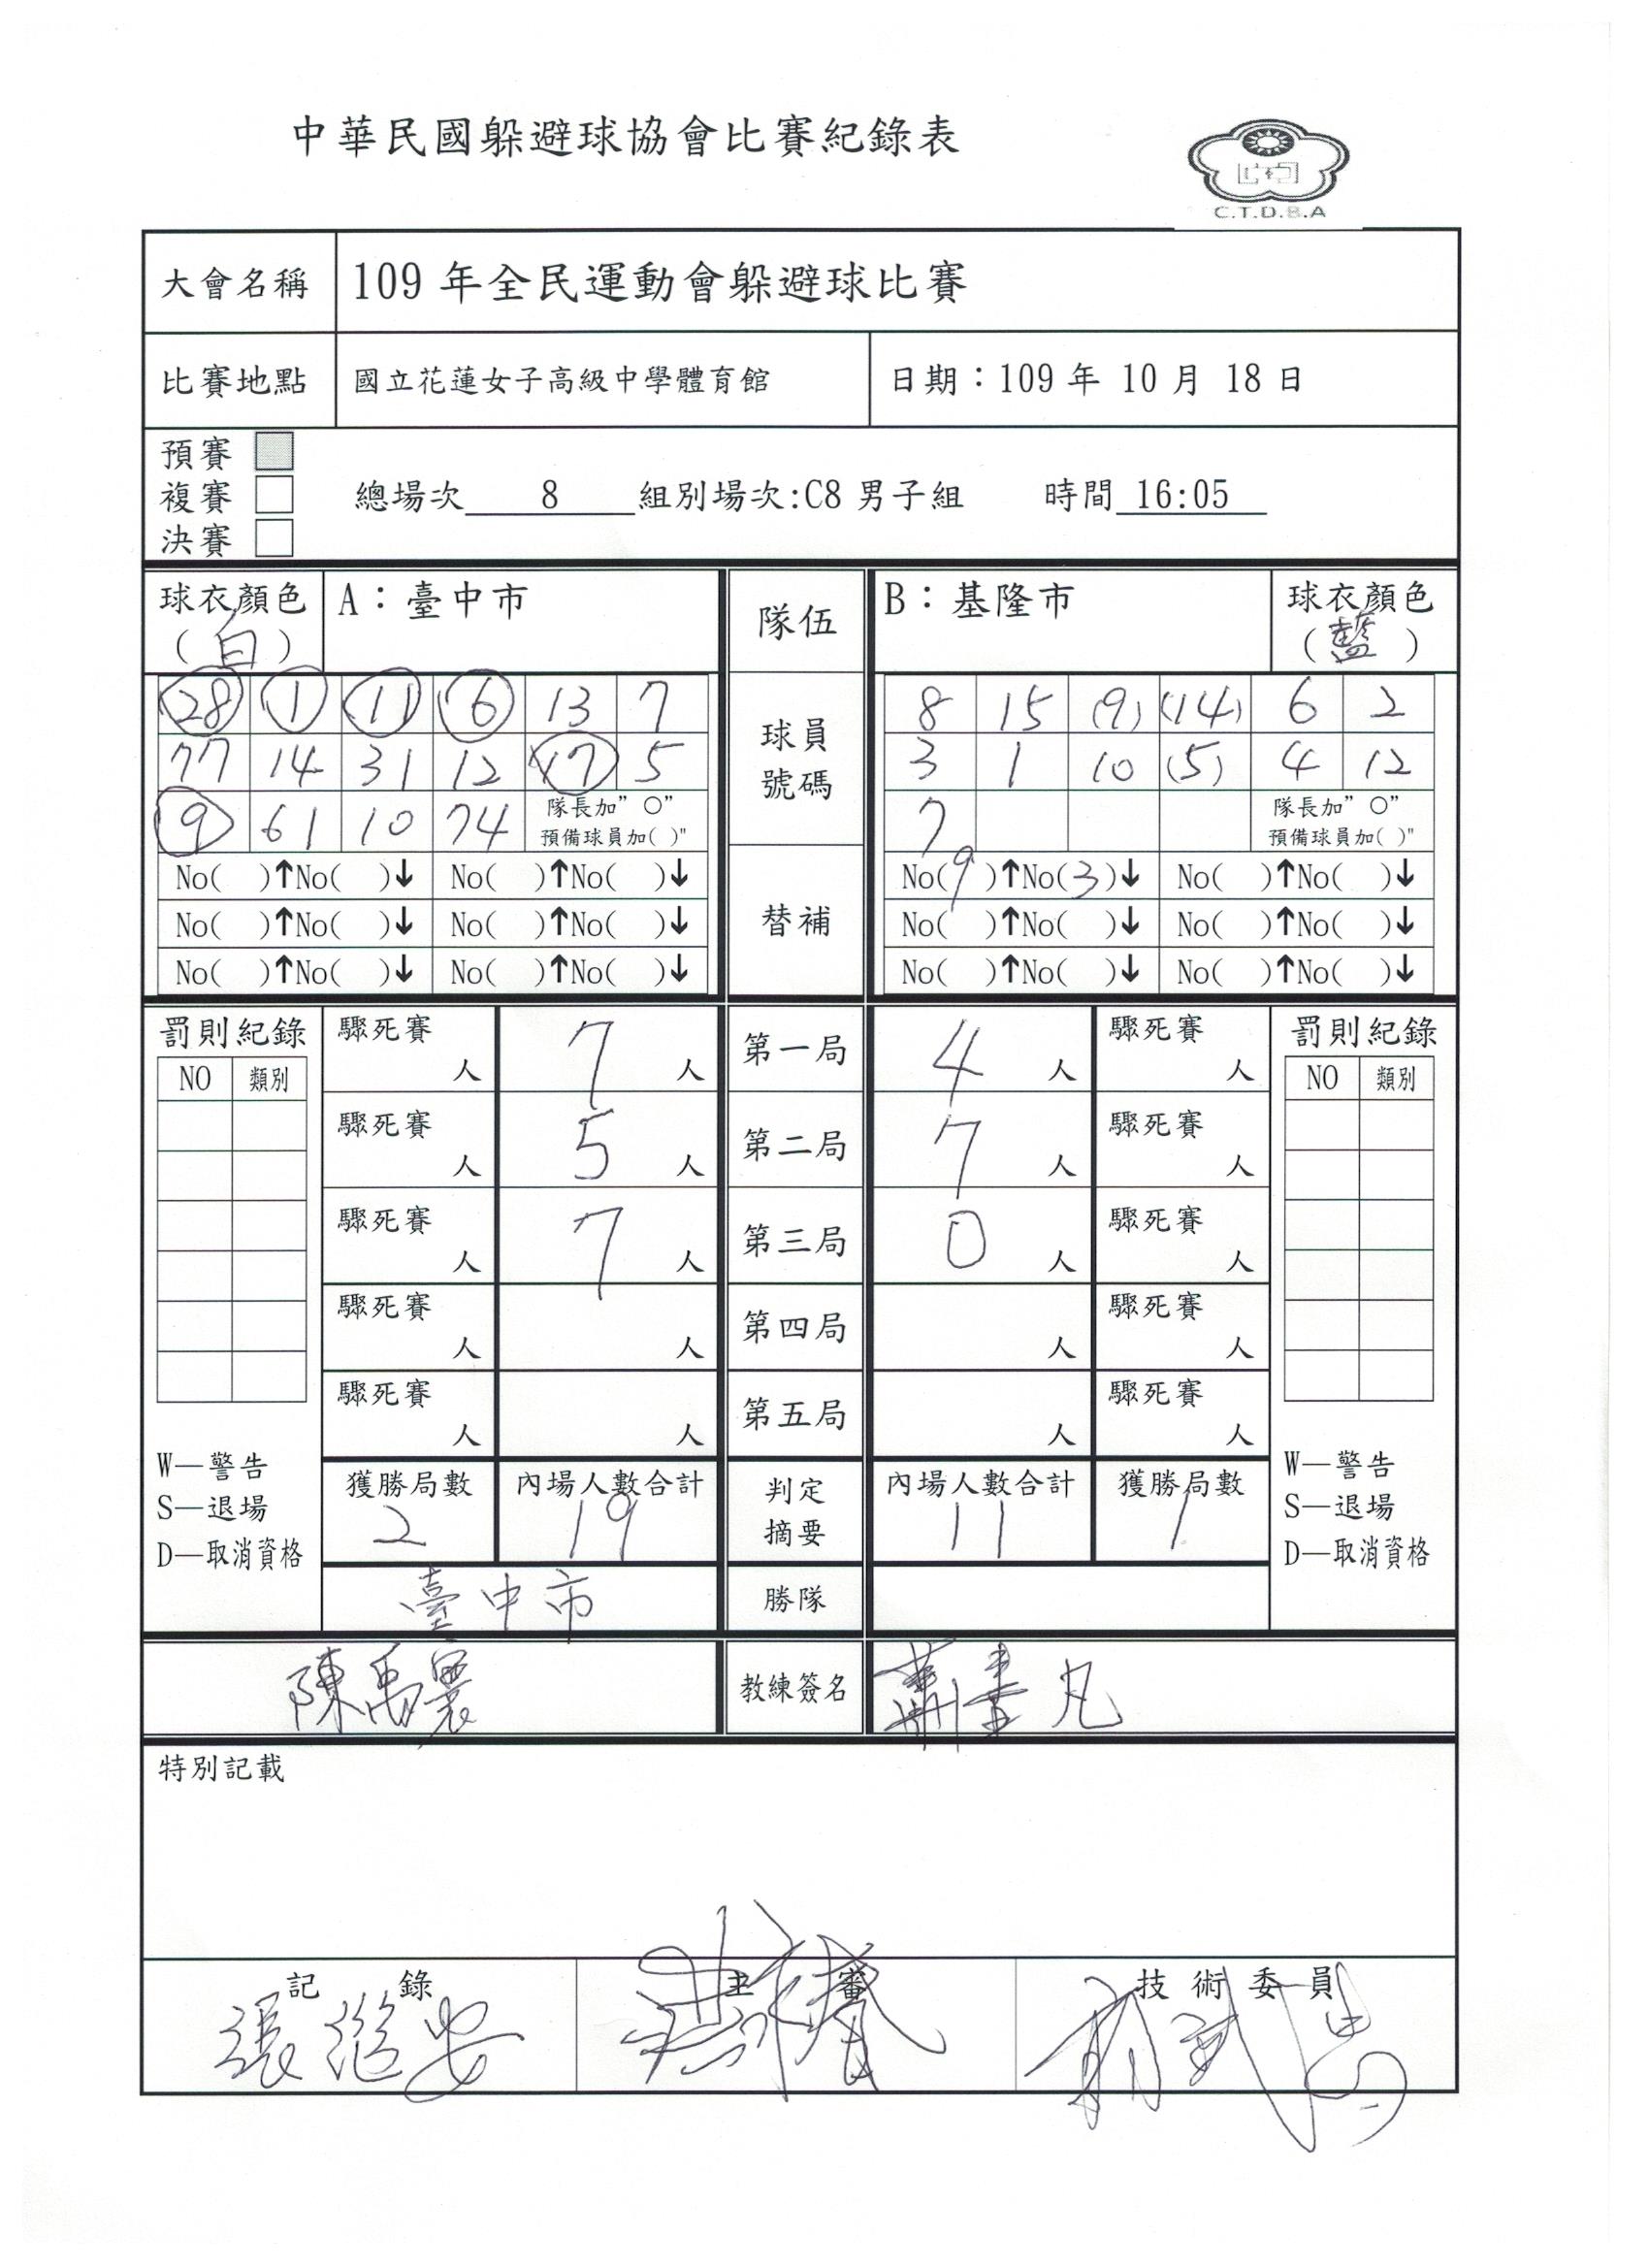 中華民國躲避球協會比賽紀錄表
C.T.D.B.A
大會名稱 109 年全民運動會躲避球比賽
比賽地點 國立花蓮女子高級中學體育館 日期：109 年 10 月 18 日
預賽
複賽 總場次 8 組別場次:C8 男子組 時間 16:05
決賽
球衣顏色 A：臺中市 隊伍 B：基隆市 球衣顏色
（白） （藍）
28 1 11 6 13 7 球員號碼 8 15 (9) (14) 6 2
77 14 31 12 17 5 3 1 10 (5) 4 12
9 61 10 74 隊長加”○” 7 隊長加”○”
預備球員加( )" 預備球員加( )"
No( )↑No( )↓ No( )↑No( )↓ 替補 No(9)↑No(3)↓ No( )↑No( )↓
No( )↑No( )↓ No( )↑No( )↓ No( )↑No( )↓ No( )↑No( )↓
No( )↑No( )↓ No( )↑No( )↓ No( )↑No( )↓ No( )↑No( )↓
罰則紀錄 驟死賽 人 7 人 第一局 4 人 驟死賽 人 罰則紀錄
NO 類別 NO 類別
驟死賽 人 5 人 第二局 7 人 驟死賽 人
驟死賽 人 7 人 第三局 0 人 驟死賽 人
驟死賽 人 人 第四局 人 驟死賽 人
驟死賽 人 人 第五局 人 驟死賽 人
W—警告 W—警告
S—退場 S—退場
D—取消資格 D—取消資格
獲勝局數 內場人數合計 判定摘要 內場人數合計 獲勝局數
2 19 11 1
臺中市 勝隊
陳禹 教練簽名 凡
特別記載
記 錄 主 審 技術委員
張 安